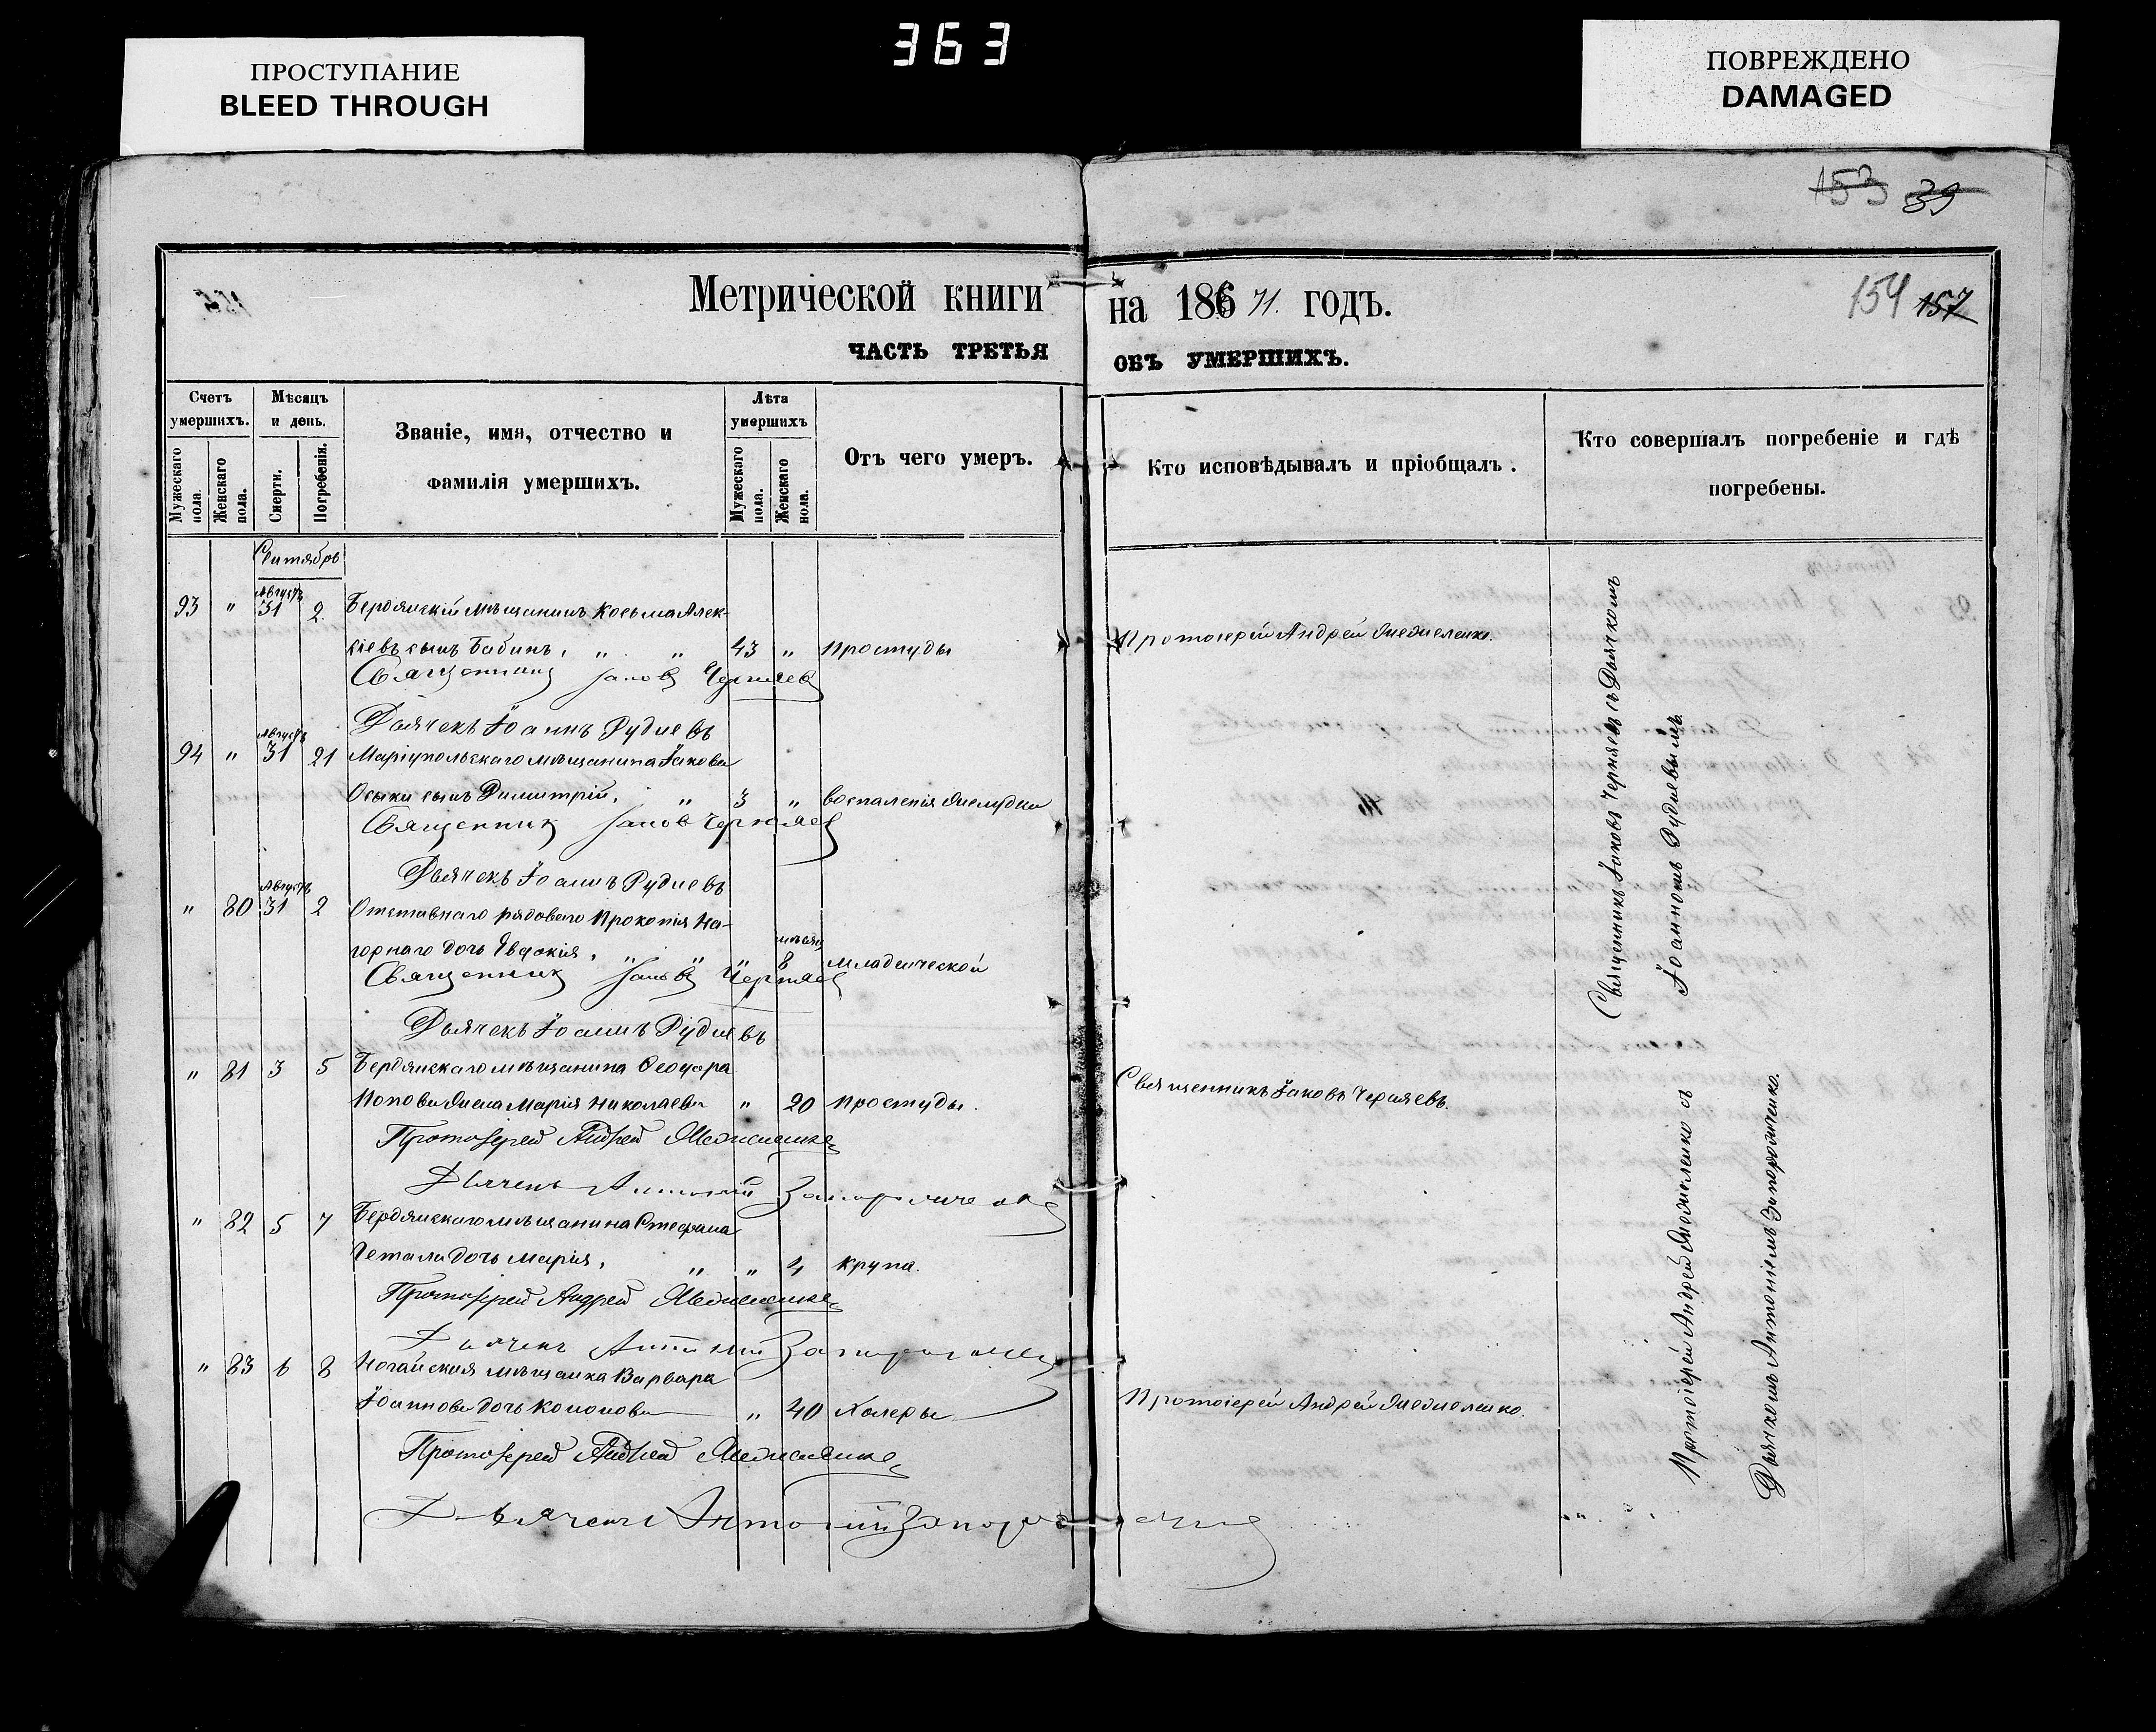 363
ПРОСТУПАНИЕ
BLEED THROUGH
ПОВРЕЖДЕНО
DAMAGED
153 39
154 157
Метрической книги на 186 71. годъ.
ЧАСТЬ ТРЕТЬЯ ОБЪ УМЕРШИХЪ.
Счетъ умершихъ.
Мужескаго пола.
Женскаго пола.
Мѣсяцъ и день.
Смерти.
Погребенія.
Званіе, имя, отчество и
фамилія умершихъ.
Лѣта умершихъ
Мужескаго пола.
Женскаго пола.
Отъ чего умеръ.
Кто исповѣдывалъ и пріобщалъ.
Кто совершалъ погребеніе и гдѣ
погребены.
Сентябрь
Августъ
93 " 31 2 Бердянскій мѣщанинъ Косьма Алек-
сіевъ сынъ Бабинъ, " " 43 " простуды Протоіерей Андрей
Священникъ Іаковъ Черняев
Дьячекъ Іоаннъ Рудневъ
Августъ
94 " 31 21 Маріупольскаго мѣщанина Іакова
Осыки сынъ Димитрій, " 3 " воспаленія желудка
Священник Іаков Черняев
Дьячекъ Іоаннъ Рудневъ
Августъ
" 80 31 2 Отставнаго рядоваго Прокопія На-
горнаго дочь Евдокія, " " 8 младенческой
Священник Іаков Черняев
Дьячекъ Іоаннъ Рудневъ
" 81 3 5 Бердянскаго мѣщанина Ѳеодора
Попова жена Марія Николаева " 20 простуды. Священникъ Іаковъ Черняевъ.
Протоіерей Андрей
Дьячекъ Антоній
" 82 5 7 Бердянскаго мѣщанина Стефана
дочь Марія, " " 4 крупа.
Протоіерей Андрей
Дьячекъ Антоній
" 83 6 8 Ногайская мѣщанка Варвара
Іоаннова дочь Кононова " 40 Холеры Протоіерей Андрей
Протоіерей Андрей
Дьячекъ Антоній
Священникъ Іаковъ Черняевъ съ Дьячкомъ
Іоанномъ Рудневымъ.
Протоіерей Андрей съ
Дьячкомъ Антоніемъ Запорожченко.